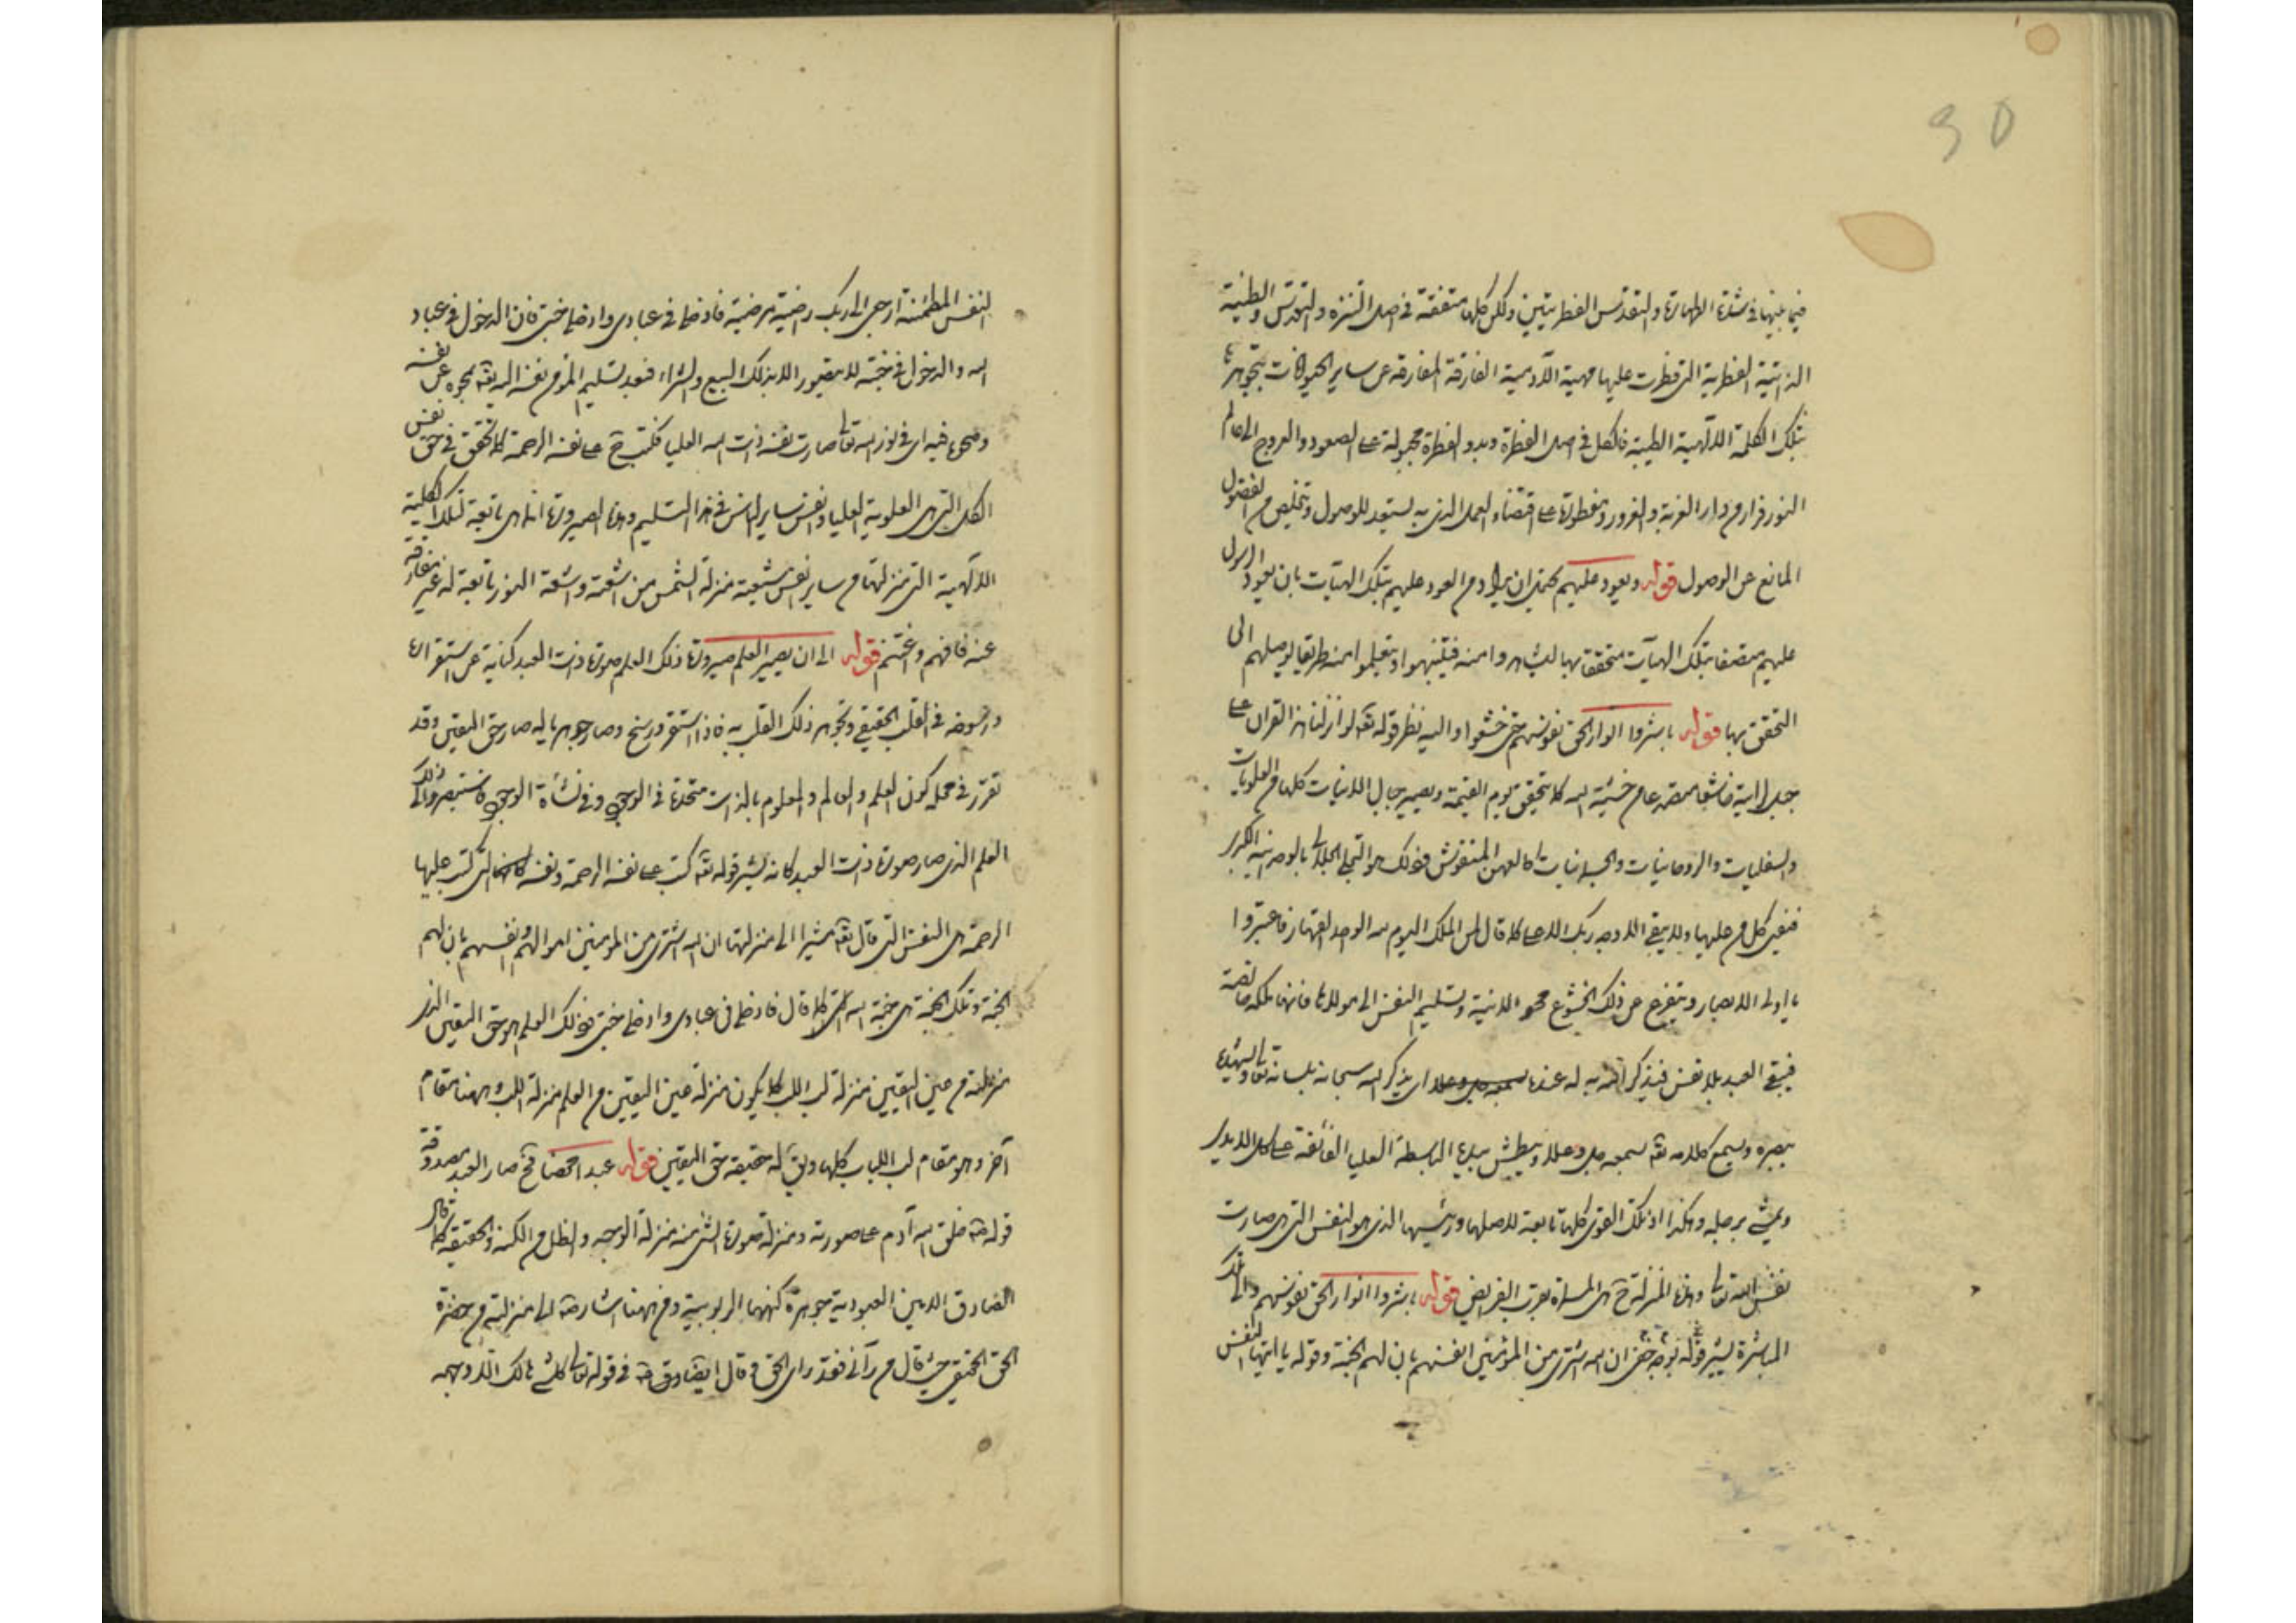 فيما بينها في شدة الطهارة والتقدس الفطريتين ولكن كلها متفقة في اصل التنزه والتقدس والطيبة
الذاتية الفطرية التي فطرت عليها مهية الآدمية الفارقة المفارقة عن ساير الحيوانات بتجوهرها
بتلك الكلمة الالهية الطيبة فالكل في اصل الفطرة وبدو الفطرة مجبولة على الصعود والعروج الى عالم
النور فرارا من دار الغربة والغرور ومفطورة على اقتضاء العمل الذي به يستعد للوصول وتخلص من الفضول
المانع عن الوصول قوله ويعود عليهم يحتمل ان يراد من العود عليهم بتلك الهيآت بان يعود الرسول
عليهم متصفا بتلك الهيآت متحققا بها ليشاهدوا منه فيتنبهوا ويتعلموا منه طريقا يوصلهم الى
التحقق بها قوله باشروا انوار الحق نفوسهم حتى خشعوا واليه نظر قوله تعه لو انزلنا هذا القران على
جبل لرايته خاشعا متصدعا من خشية الله كما يتحقق يوم القيمة ويصير جبال الانيات كلها من العلويات
والسفليات والروحانيات والجسمانيات كالعهن المنفوش فذلك هو التجلي الجلالي بالوحدانية الكبرى
فيفنى كل من عليها ولا يبقى الا وجه ربك الاعلى كما قال لمن الملك اليوم لله الواحد القهار فاعتبروا
يا اولى الابصار ويتفرع عن ذلك الخشوع محو الانية وتسليم النفس الى مولاها فانها ملكه خاصة
فيبقى العبد بلا نفس فيذكر الله به له عنده اي يذكر الله سبحانه بلسانه تعالى ويشهده
ببصره ويسمع كلامه تعه بسمعه جل وعلا ويبطش بيده الباسطة العليا الفائقة على كل الايدي
ويمشي برجله وهكذا اذ تلك القوى كلها تابعة لاصلها ورئيسها الذي هو النفس التي صارت
نفس الله تعالى وهذه المنزلة ح هي المسماة بقرب الفرايض قوله باشروا انوار الحق نفوسهم والى تلك
المباشرة يشير قوله بوجه خفي ان الله اشترى من المؤمنين انفسهم بان لهم الجنة وقوله يا ايتها النفس
النفس المطمئنة ارجعي الى ربك راضية مرضية فادخلي في عبادي وادخلي جنتي فان الدخول في عباد
الله والدخول في جنته لا يتصور الا بذلك البيع والشراء فبعد تسليم المؤمن نفسه اليه تعه بمحوه عن نفسه
ومحوه فيه اي في نور الله تعالى صارت نفسه ذات الله العليا فكتب ح على نفسه الرحمة كما تحقق في حق نفس
الكل التي هي العلوية العليا ونفس ساير الناس في هذا التسليم وهذه الصيرورة انما هي تابعة لتلك الكلية
الالهية التي منزلتها من ساير نفس شيعته منزلة الشمس من اشعته واشعة النور تابعة له غير مفارقة
عنه فافهم واغتنم قوله الى ان يصير العلم صيرورة ذلك العلم صورة ذات العبد كناية عن استقراره
ورسوخه في القلب الحقيقي وتجوهر ذلك القلب به فاذا استقر ورسخ وصار جوهرياً له صار حق اليقين وقد
تقرر في محله كون العلم والعالم والمعلوم بالذات متحدة في الوجود وفي نشأة الوجود فاستبصر والى ذلك
العلم الذي صار صورة ذات العبد كانه يشير قوله تعه كتب على نفسه الرحمة ونفسه التي كتب عليها
الرحمة هي النفس التي قال تعه مشيرا الى منزلتها ان الله اشترى من المؤمنين اموالهم وانفسهم بان لهم
الجنة وتلك الجنة هي جنة الله كما قال فادخلي في عبادي وادخلي جنتي فذلك العلم هو حق اليقين الذي
منزلته من عين اليقين منزلة لب اللب كما يكون منزلة عين اليقين من العلم منزلة اللب وههنا مقام
آخر وهو مقام لب اللباب كلها ويق له حقيقة حق اليقين قوله عبدا محضا فح صار العبد مصدوقة
قوله خلق الله آدم على صورته ومنزلة صورة الشئ منه منزلة الوجه والظل من الكنه والحقيقة كما قال
الصادق الامين العبودية جوهرة كنهها الربوبية ومن ههنا اشار الى منزلته من حضرة
الحق الحقيقي حيث قال من رآني فقد راى الحق وقال الصادق في قوله تعالى كل شئ هالك الا وجهه